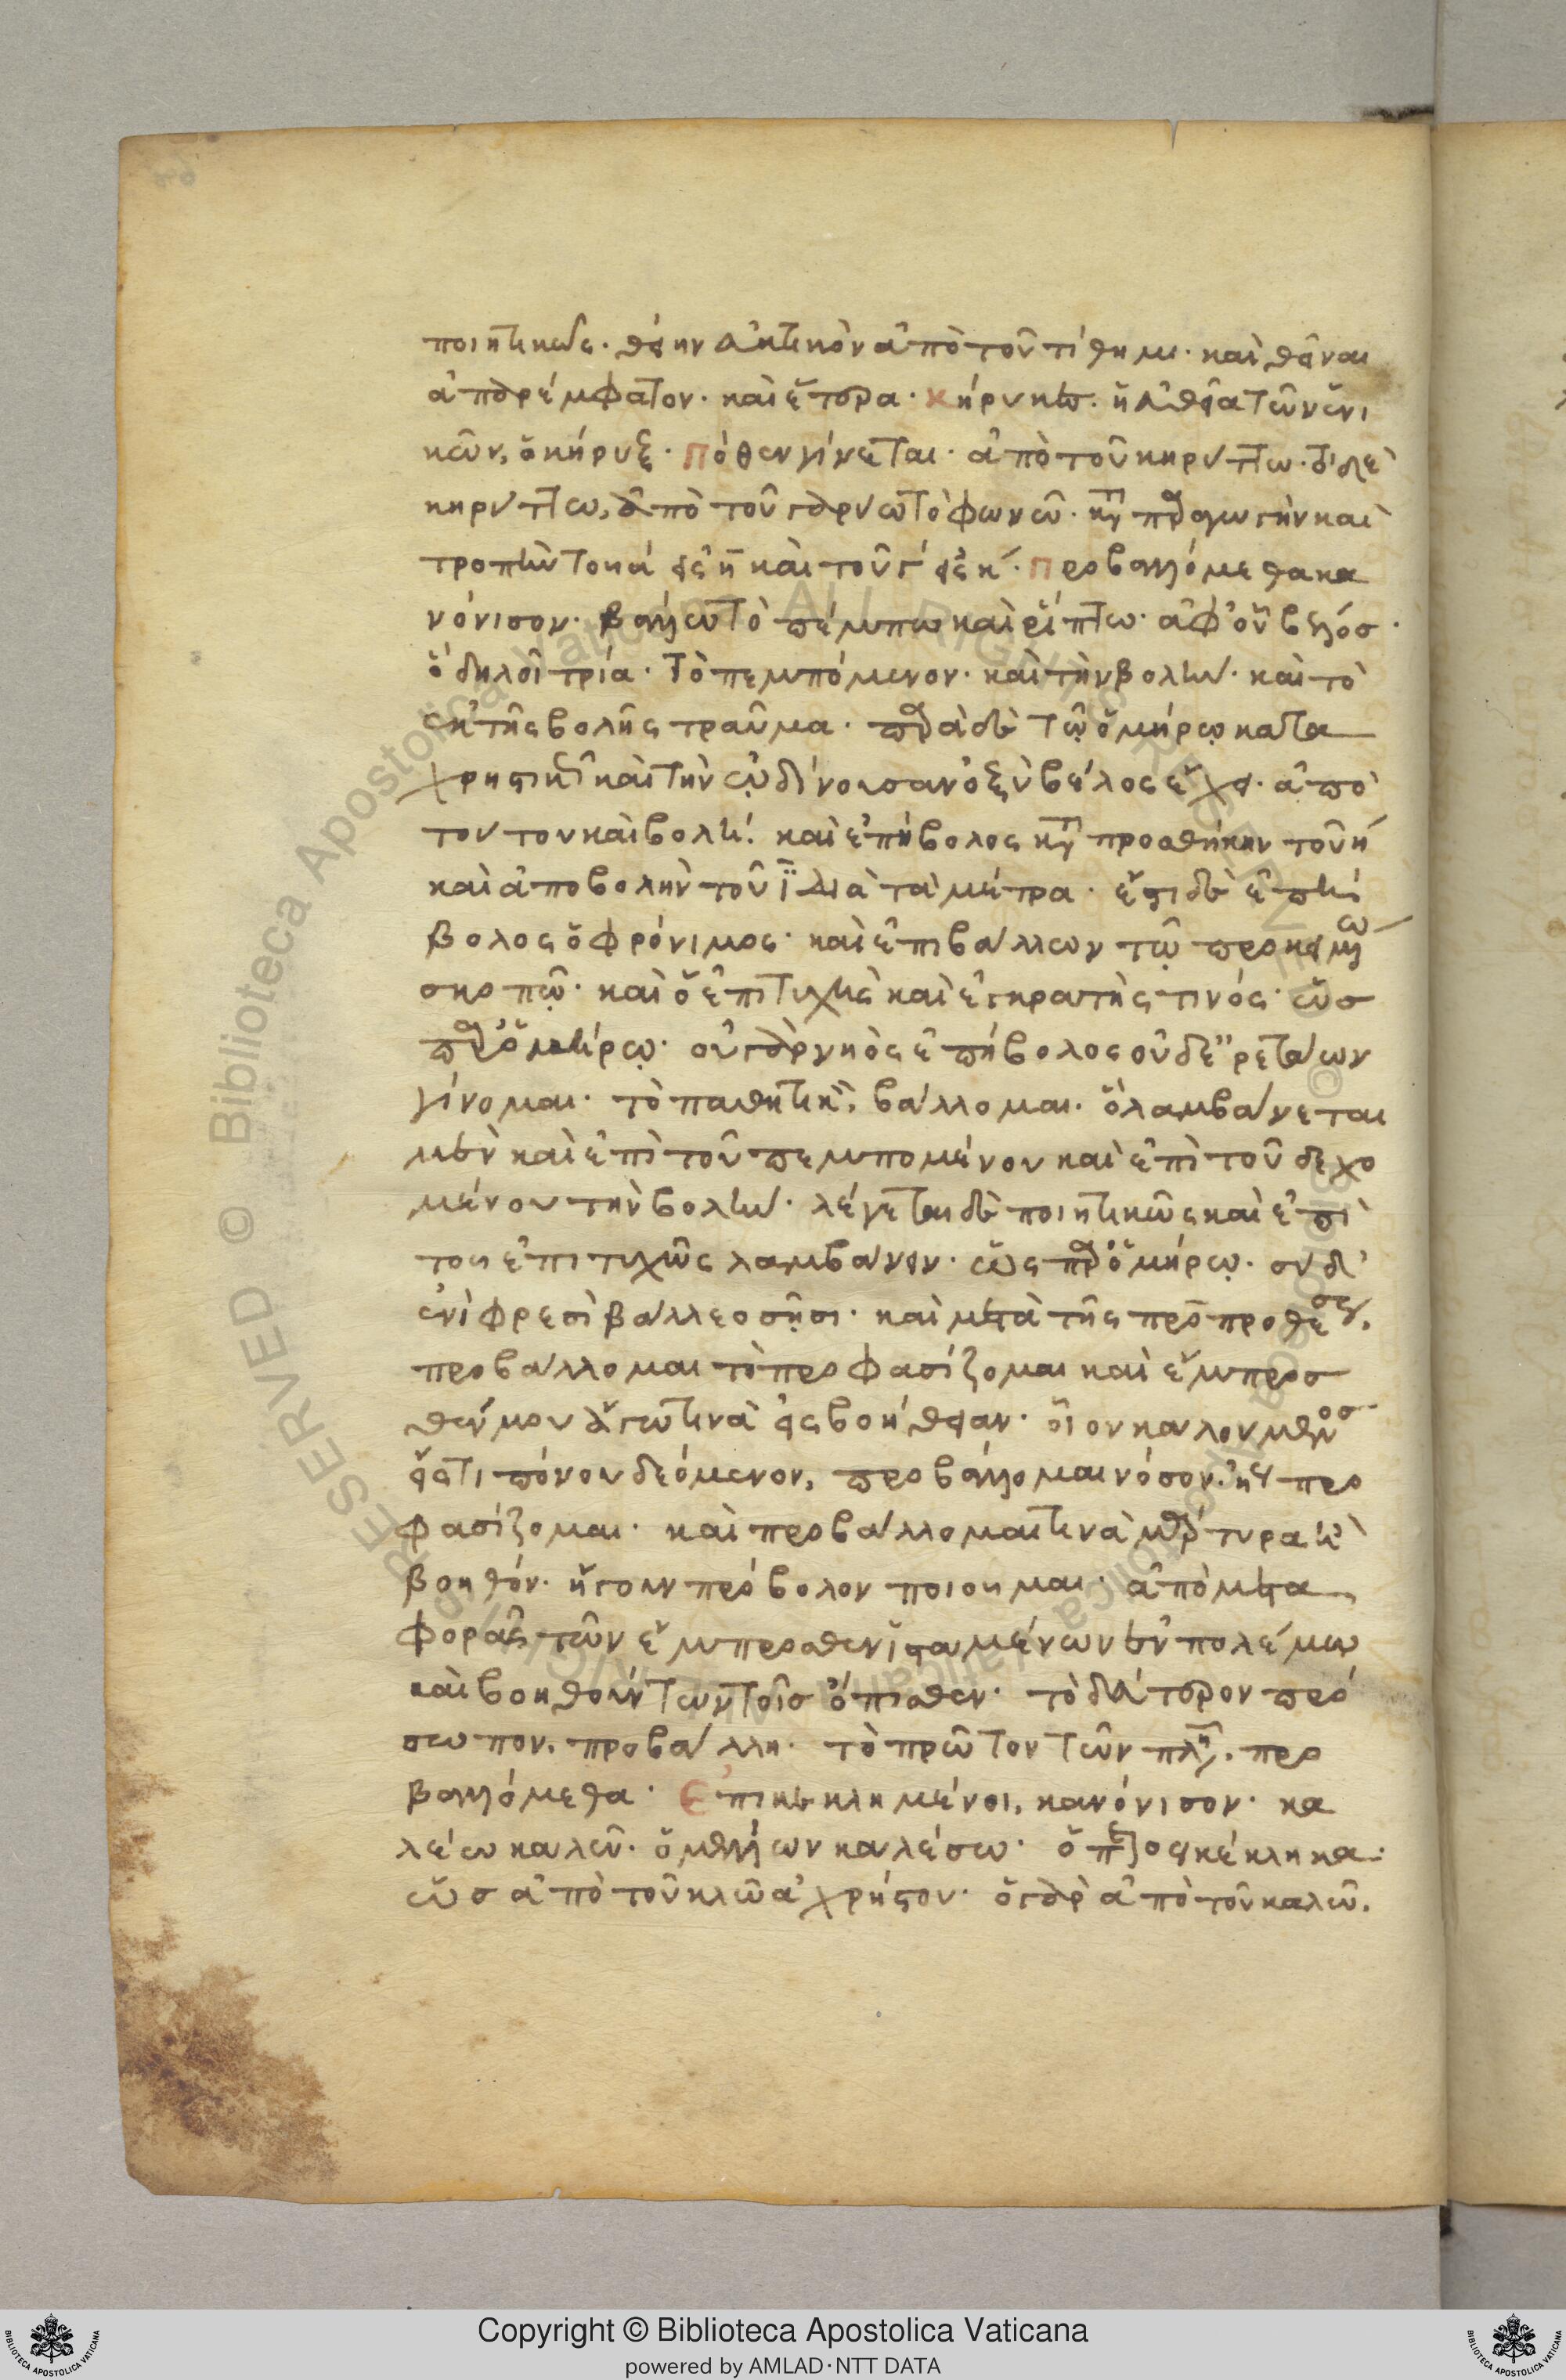 ποιητικῶς· θείην εὐκτικὸν ἀπὸ τοῦ τίθημι· καὶ θεῖναι
ἀπαρέμφατον· καὶ ἕτερα· κήρυκες· ἡ εὐθεῖα τῶν ἑνι
κῶν, ὁ κήρυξ· πόθεν γίνεται· ἀπὸ τοῦ κηρύττω· τὸ δὲ
κηρύττω, ἀπὸ τοῦ γαρύω τὸ φωνῶ· κατὰ παραγωγὴν καὶ
τροπὴν τοῦ α εἰς η καὶ τοῦ γ εἰς κ· προβαλλόμεθα κα
νόνισον· βάλλω τὸ πέμπω καὶ ῥίπτω· ἀφ' οὗ βέλος·
ὃ δηλοῖ τρία· τὸ πεμπόμενον· καὶ τὴν βολήν· καὶ τὸ
ἐκ τῆς βολῆς τραῦμα· παρὰ δὲ τῷ ὁμήρῳ κατα
χρηστικῶς καὶ τὴν ὠδίνουσαν ὀξὺ βέλος ἔχει· ἀπὸ
τούτου καὶ βολή· καὶ ἐπήβολος κατὰ προσθήκην τοῦ η
καὶ ἀποβολὴν τοῦ ϊ διὰ τὰ μέτρα· ἔστι δὲ ἐπή
βολος ὁ φρόνιμος· καὶ ἐπιβάλλων τῷ προκειμένῳ
σκοπῷ· καὶ ὁ ἐπιτυχὴς καὶ ἐγκρατής τινός· ὡς
παρ' ὁμήρῳ· οὐ γὰρ νηὸς ἐπήβολος οὐδ' ἐρετάων
γίνομαι· τὸ παθητικὸν, βάλλομαι· ὃ λαμβάνεται
μὲν καὶ ἐπὶ τοῦ πεμπομένου καὶ ἐπὶ τοῦ δεχο
μένου τὴν βολήν· λέγεται δὲ ποιητικῶς καὶ ἐπὶ
τοῦ ἐπιτυχῶς λαμβάνειν· ὡς παρ' ὁμήρῳ· σὺ δ'
ἐνὶ φρεσὶ βάλλεο σῇσι· καὶ μετὰ τῆς πρὸ προθέσεως,
προβάλλομαι τὸ προφασίζομαι καὶ ἔμπροσ
θέν μου ἄγω τινὰ εἰς βοήθειαν· οἷον καλούμενος
εἴς τι πόνου δεόμενον, προβάλλομαι νόσον· ἤγουν προ
φασίζομαι· καὶ προβάλλομαί τινα μάρτυρα ἢ
βοηθόν· ἤγουν πρόβολον ποιοῦμαι· ἀπὸ μετα
φορᾶς τῶν ἔμπροσθεν ἱσταμένων ἐν πολέμῳ
καὶ βοηθούντων τοῖς ὄπισθεν· τὸ δεύτερον πρό
σωπον, προβάλλῃ· τὸ πρῶτον τῶν πληθυντικῶν, προ
βαλλόμεθα· ἐπικεκλημένοι, κανόνισον· κα
λέω καλῶ· ὁ μέλλων καλέσω· ὁ παρακείμενος κέκληκα·
ὡς ἀπὸ τοῦ κλῶ ἀχρήστου· ὁ γὰρ ἀπὸ τοῦ καλῶ.
Copyright © Biblioteca Apostolica Vaticana
powered by AMLAD·NTT DATA